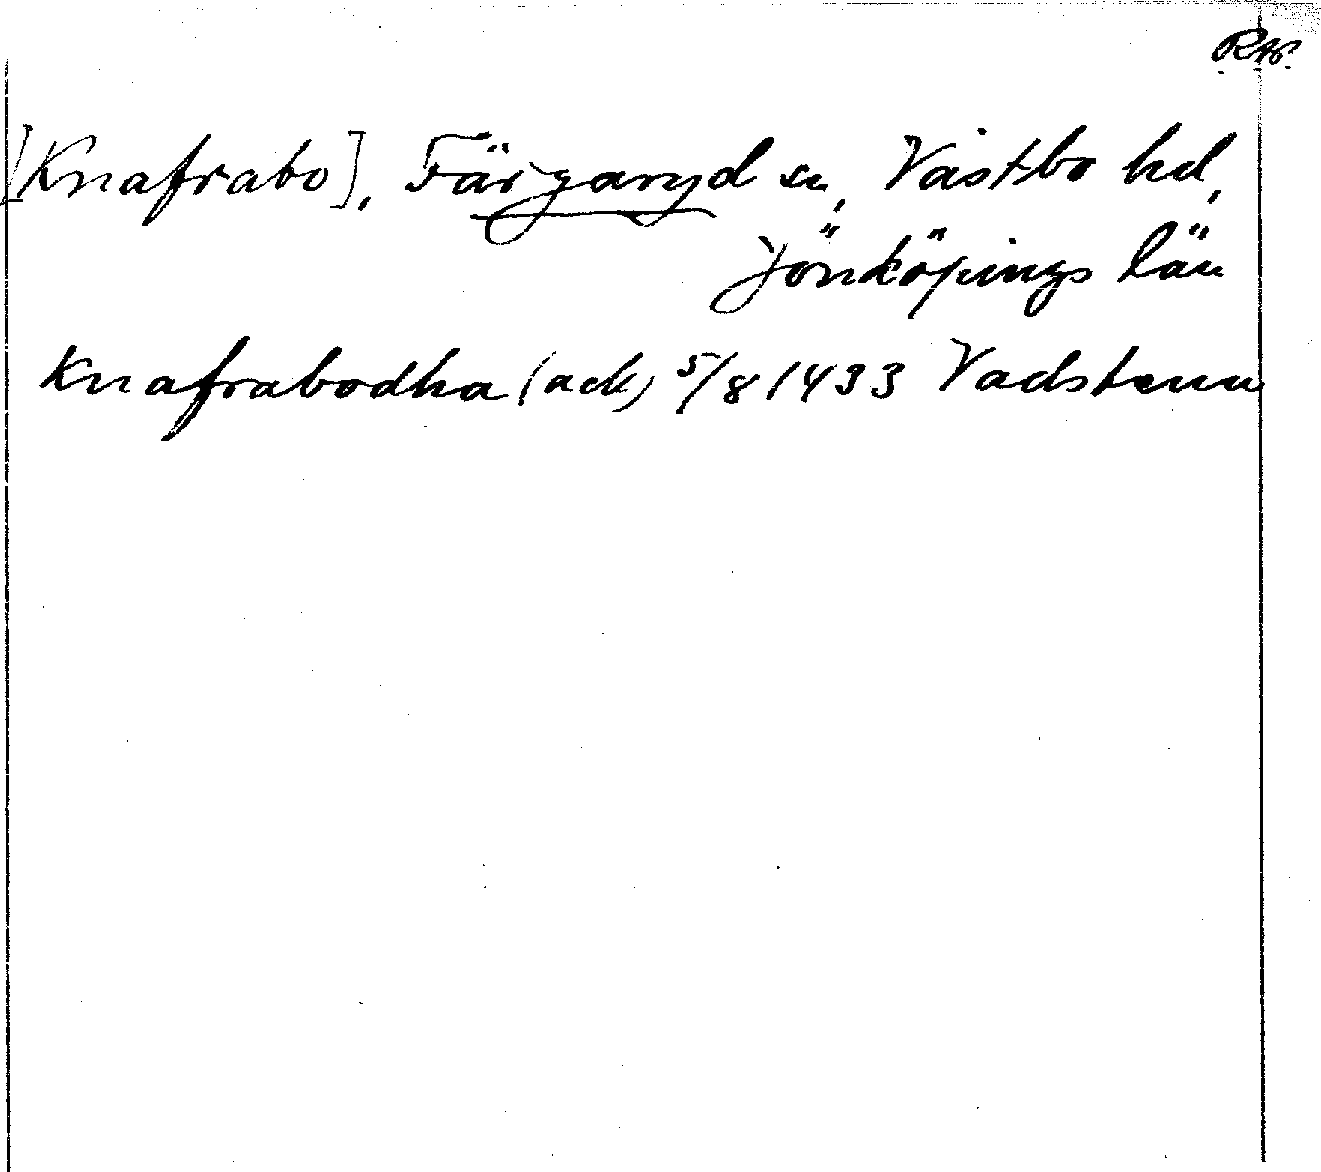 RAP.
[Knafrabo], Färgaryd sn, Västbo hd,
Jönköpings län
Knafrabodha (ack) 5/8 1433 Vadstena